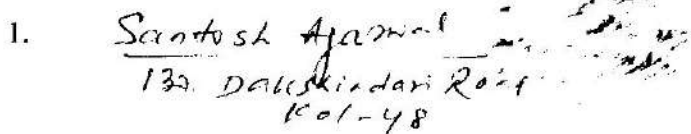 1. Santosh Agarwal
132 Dakshindari Road
Kol-48